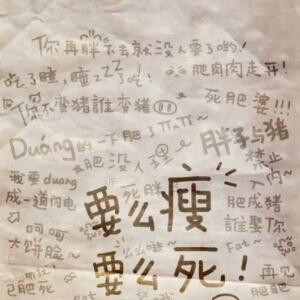 你再胖下去就没人要了哟!
吃了睡,睡zzZ了吃!
肥肉肉走开!
你不变猪誰变猪
死肥婆!!!
Duang的一下肥了
胖子与猪
禁止入内
肥没人理
我要duang
成一道闪电
死胖
肥成猪
誰娶你
呵呵
大饼脸~
要么瘦
要么死!
Fat~
再见
肥肥